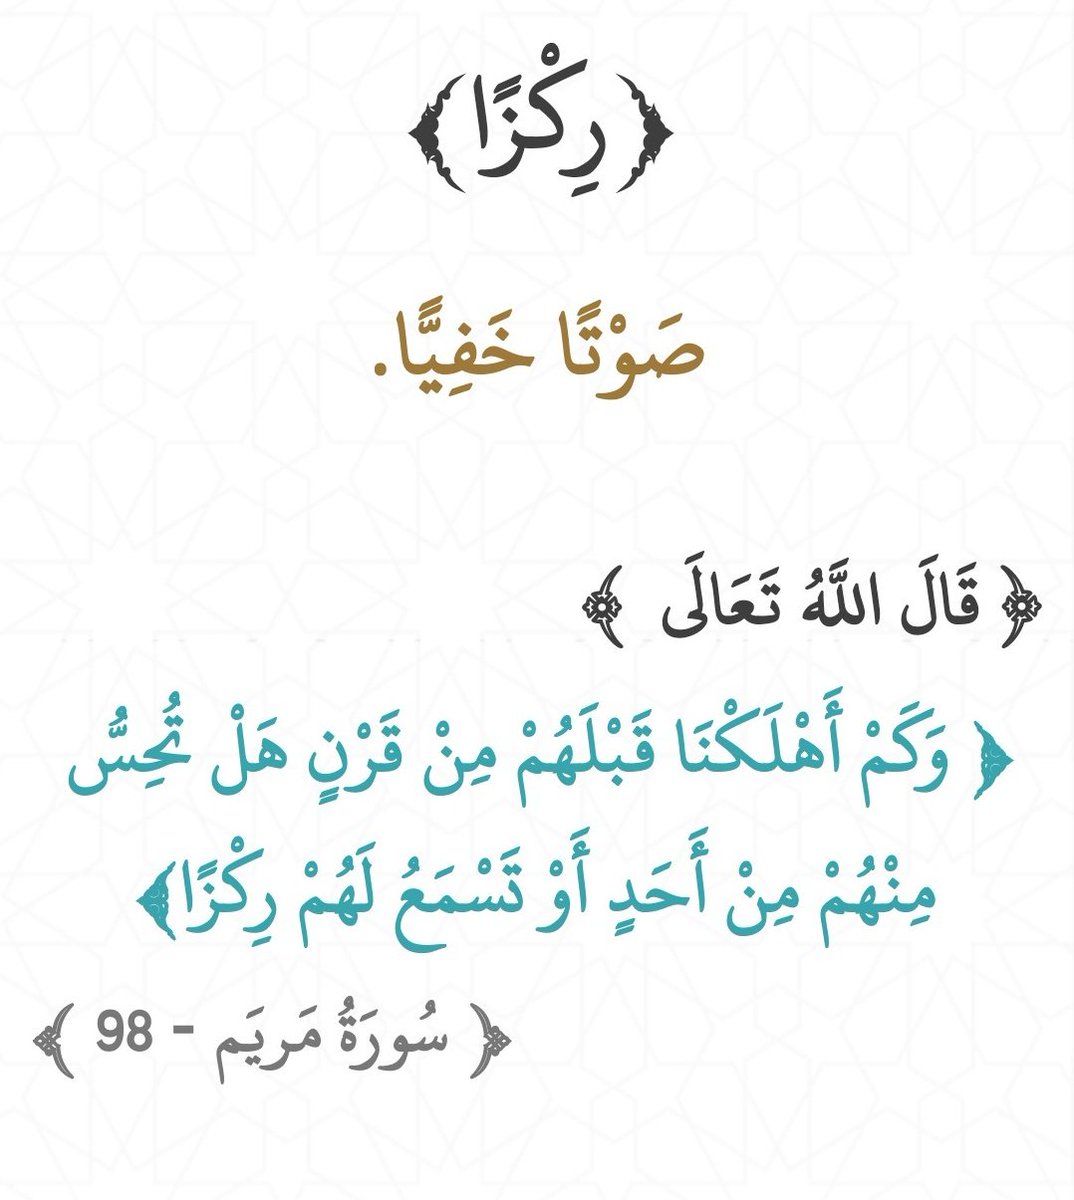 ﴿رِكْزًا﴾
صَوْتًا خَفِيًّا.
﴿ قَالَ اللَّهُ تَعَالَى ﴾
﴿ وَكَمْ أَهْلَكْنَا قَبْلَهُمْ مِنْ قَرْنٍ هَلْ تُحِسُّ
مِنْهُمْ مِنْ أَحَدٍ أَوْ تَسْمَعُ لَهُمْ رِكْزًا﴾
﴿ سُورَةُ مَريَم - 98 ﴾